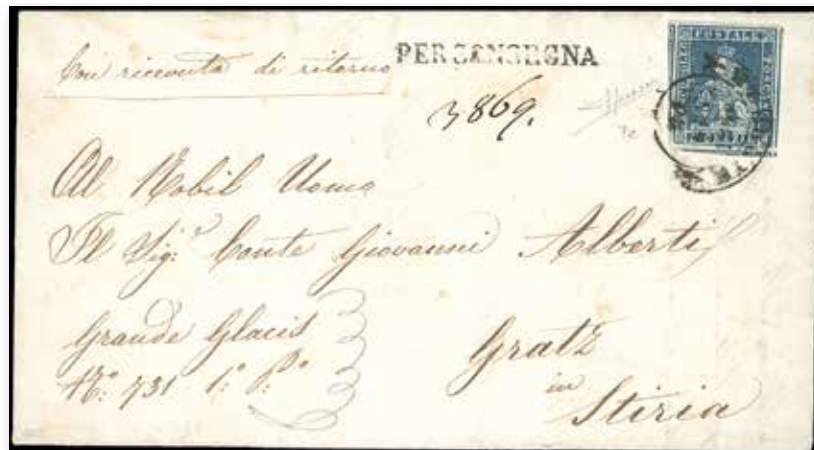 Con ricevuta di ritorno
PER CONSEGNA
3869.
Al Nobil Uomo
Il Sig.r Conte Giovanni Alberti
Grande Glacis
No. 731 1o. Po.
Gratz
in
Stiria
POSTALE